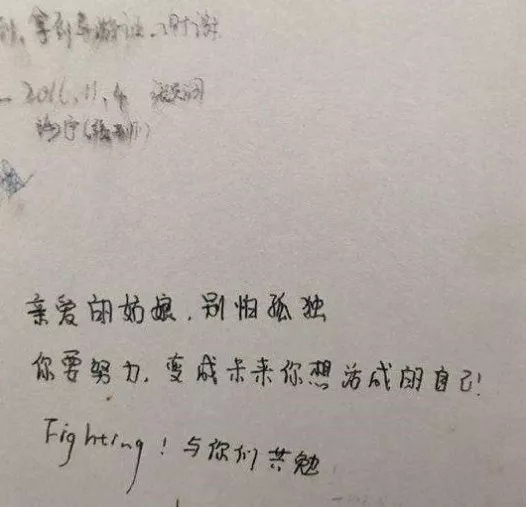 2016.11.4
亲爱的姑娘,别怕孤独
你要努力,变成未来你想活成的自己!
Fighting!与你们共勉